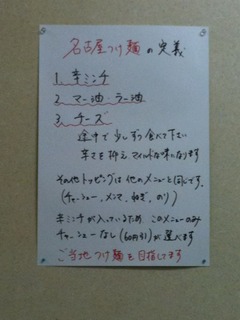 名古屋つけ麺の定義
1. 辛ミンチ
2. マー油・ラー油
3. チーズ
途中で少しずつ食べて下さい
辛さを抑えマイルドな味になります
その他トッピングは他のメニューと同じです。
(チャーシュー、メンマ、ねぎ、のり)
辛ミンチが入っているため このメニューのみ
チャーシューなし(60円引)が選べます
ご当地つけ麺を目指してます